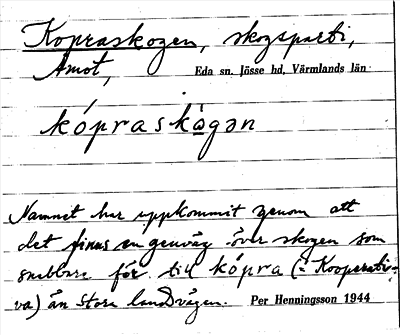 Kopraskogen, skogsparti,
Åmot, Eda sn, Jösse hd, Värmlands län
kópraskågən
Namnet har uppkommit genom att
det finns en genväg över skogen som
snabbare för till kópra (= Kooperati-
va) än stora landsvägen. Per Henningsson 1944